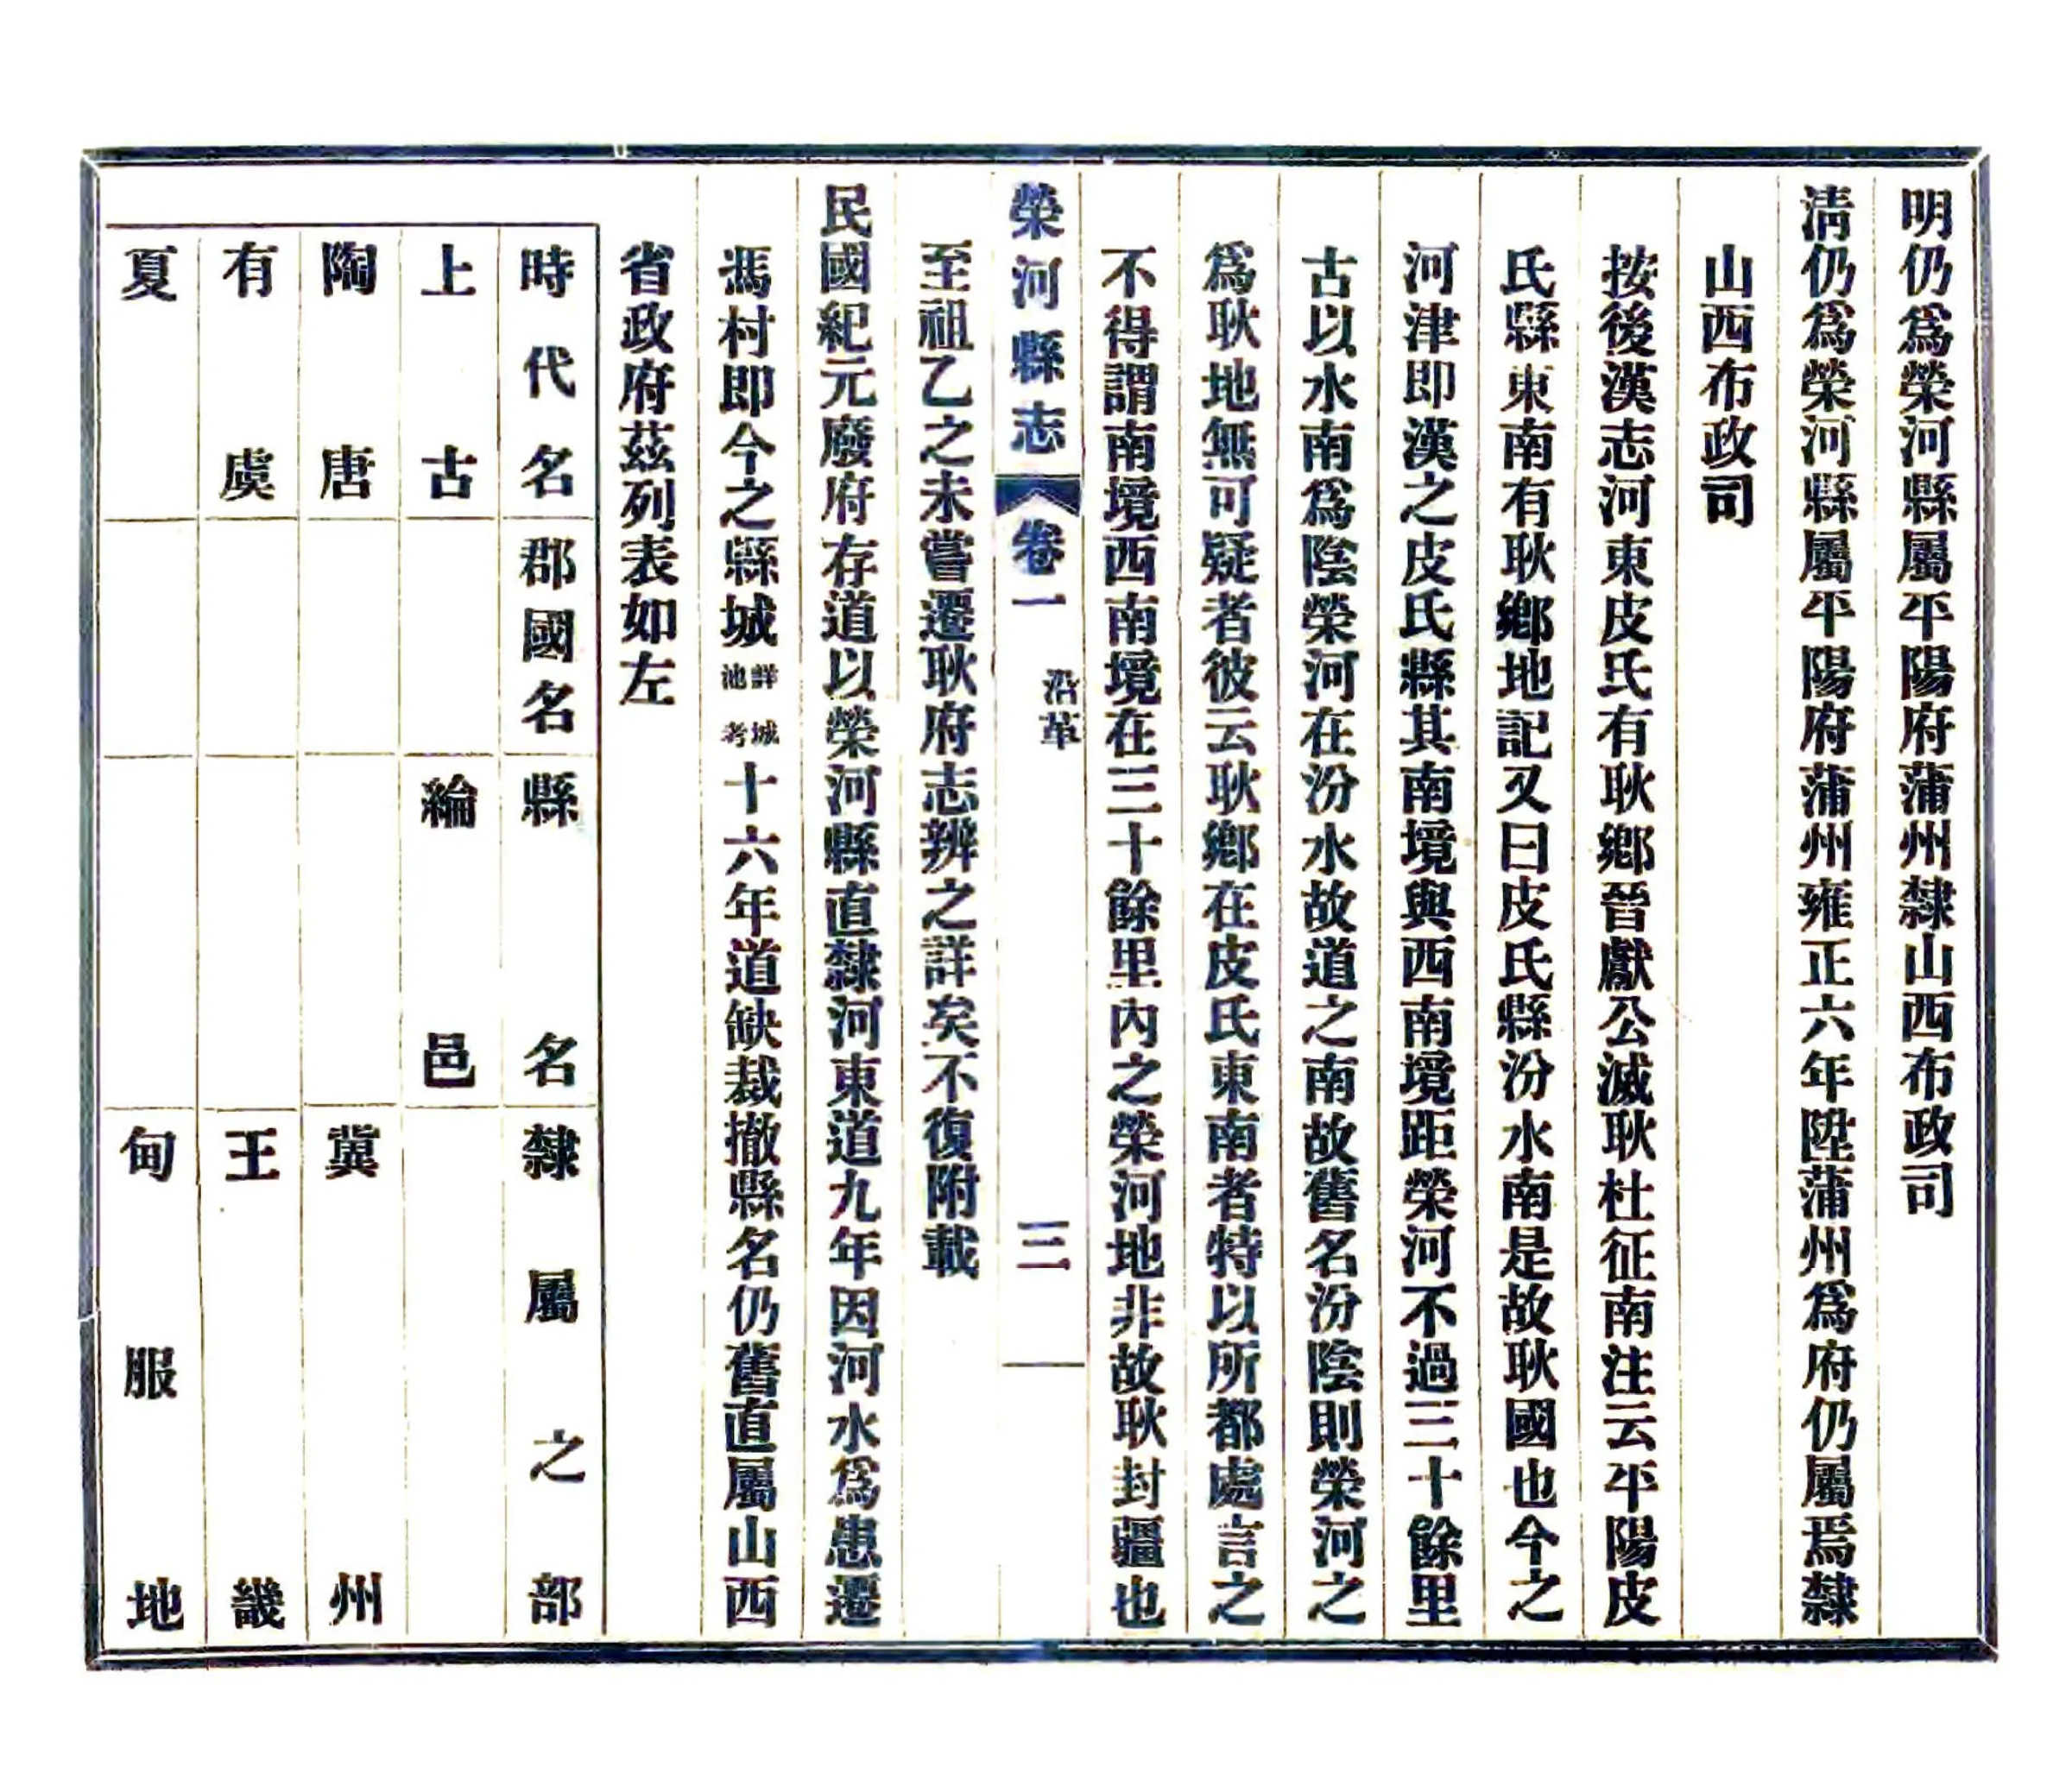 明仍爲榮河縣屬平陽府蒲州隸山西布政司
淸仍爲榮河縣屬平陽府蒲州雍正六年陞蒲州爲府仍屬焉隸
山西布政司
按後漢志河東皮氏有耿鄉晉獻公滅耿杜征南注云平陽皮
氏縣東南有耿鄉地記又曰皮氏縣汾水南是故耿國也今之
河津即漢之皮氏縣其南境與西南境距榮河不過三十餘里
古以水南爲陰榮河在汾水故道之南故舊名汾陰則榮河之
爲耿地無可疑者彼云耿鄉在皮氏東南者特以所都處言之
不得謂南境西南境在三十餘里內之榮河地非故耿封疆也
榮河縣志 卷一 沿革 三
至祖乙之未嘗遷耿府志辨之詳矣不復附載
民國紀元廢府存道以榮河縣直隸河東道九年因河水爲患遷
馮村即今之縣城詳城池考十六年道缺裁撤縣名仍舊直屬山西
省政府茲列表如左
時代名 郡國名 縣名 隸屬之部
上古 綸邑
陶唐 冀州
有虞 王畿
夏 甸服地